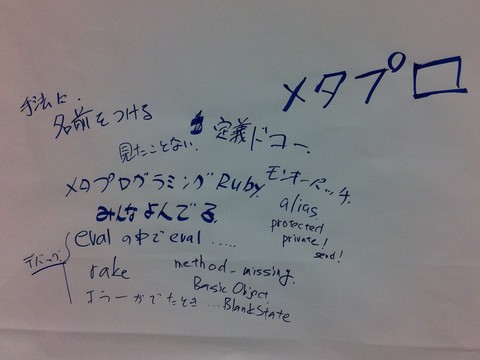 メタプロ
手法に.
名前をつける
定義ドコー.
見たことない.
メタプログラミングRuby.
みんなよんでる
モンキーパッチ.
alias
protected
private!
send!
デバッグ
evalの中でeval .....
rake
method_missing.
Basic Object
エラーがでたとき ...BlankState